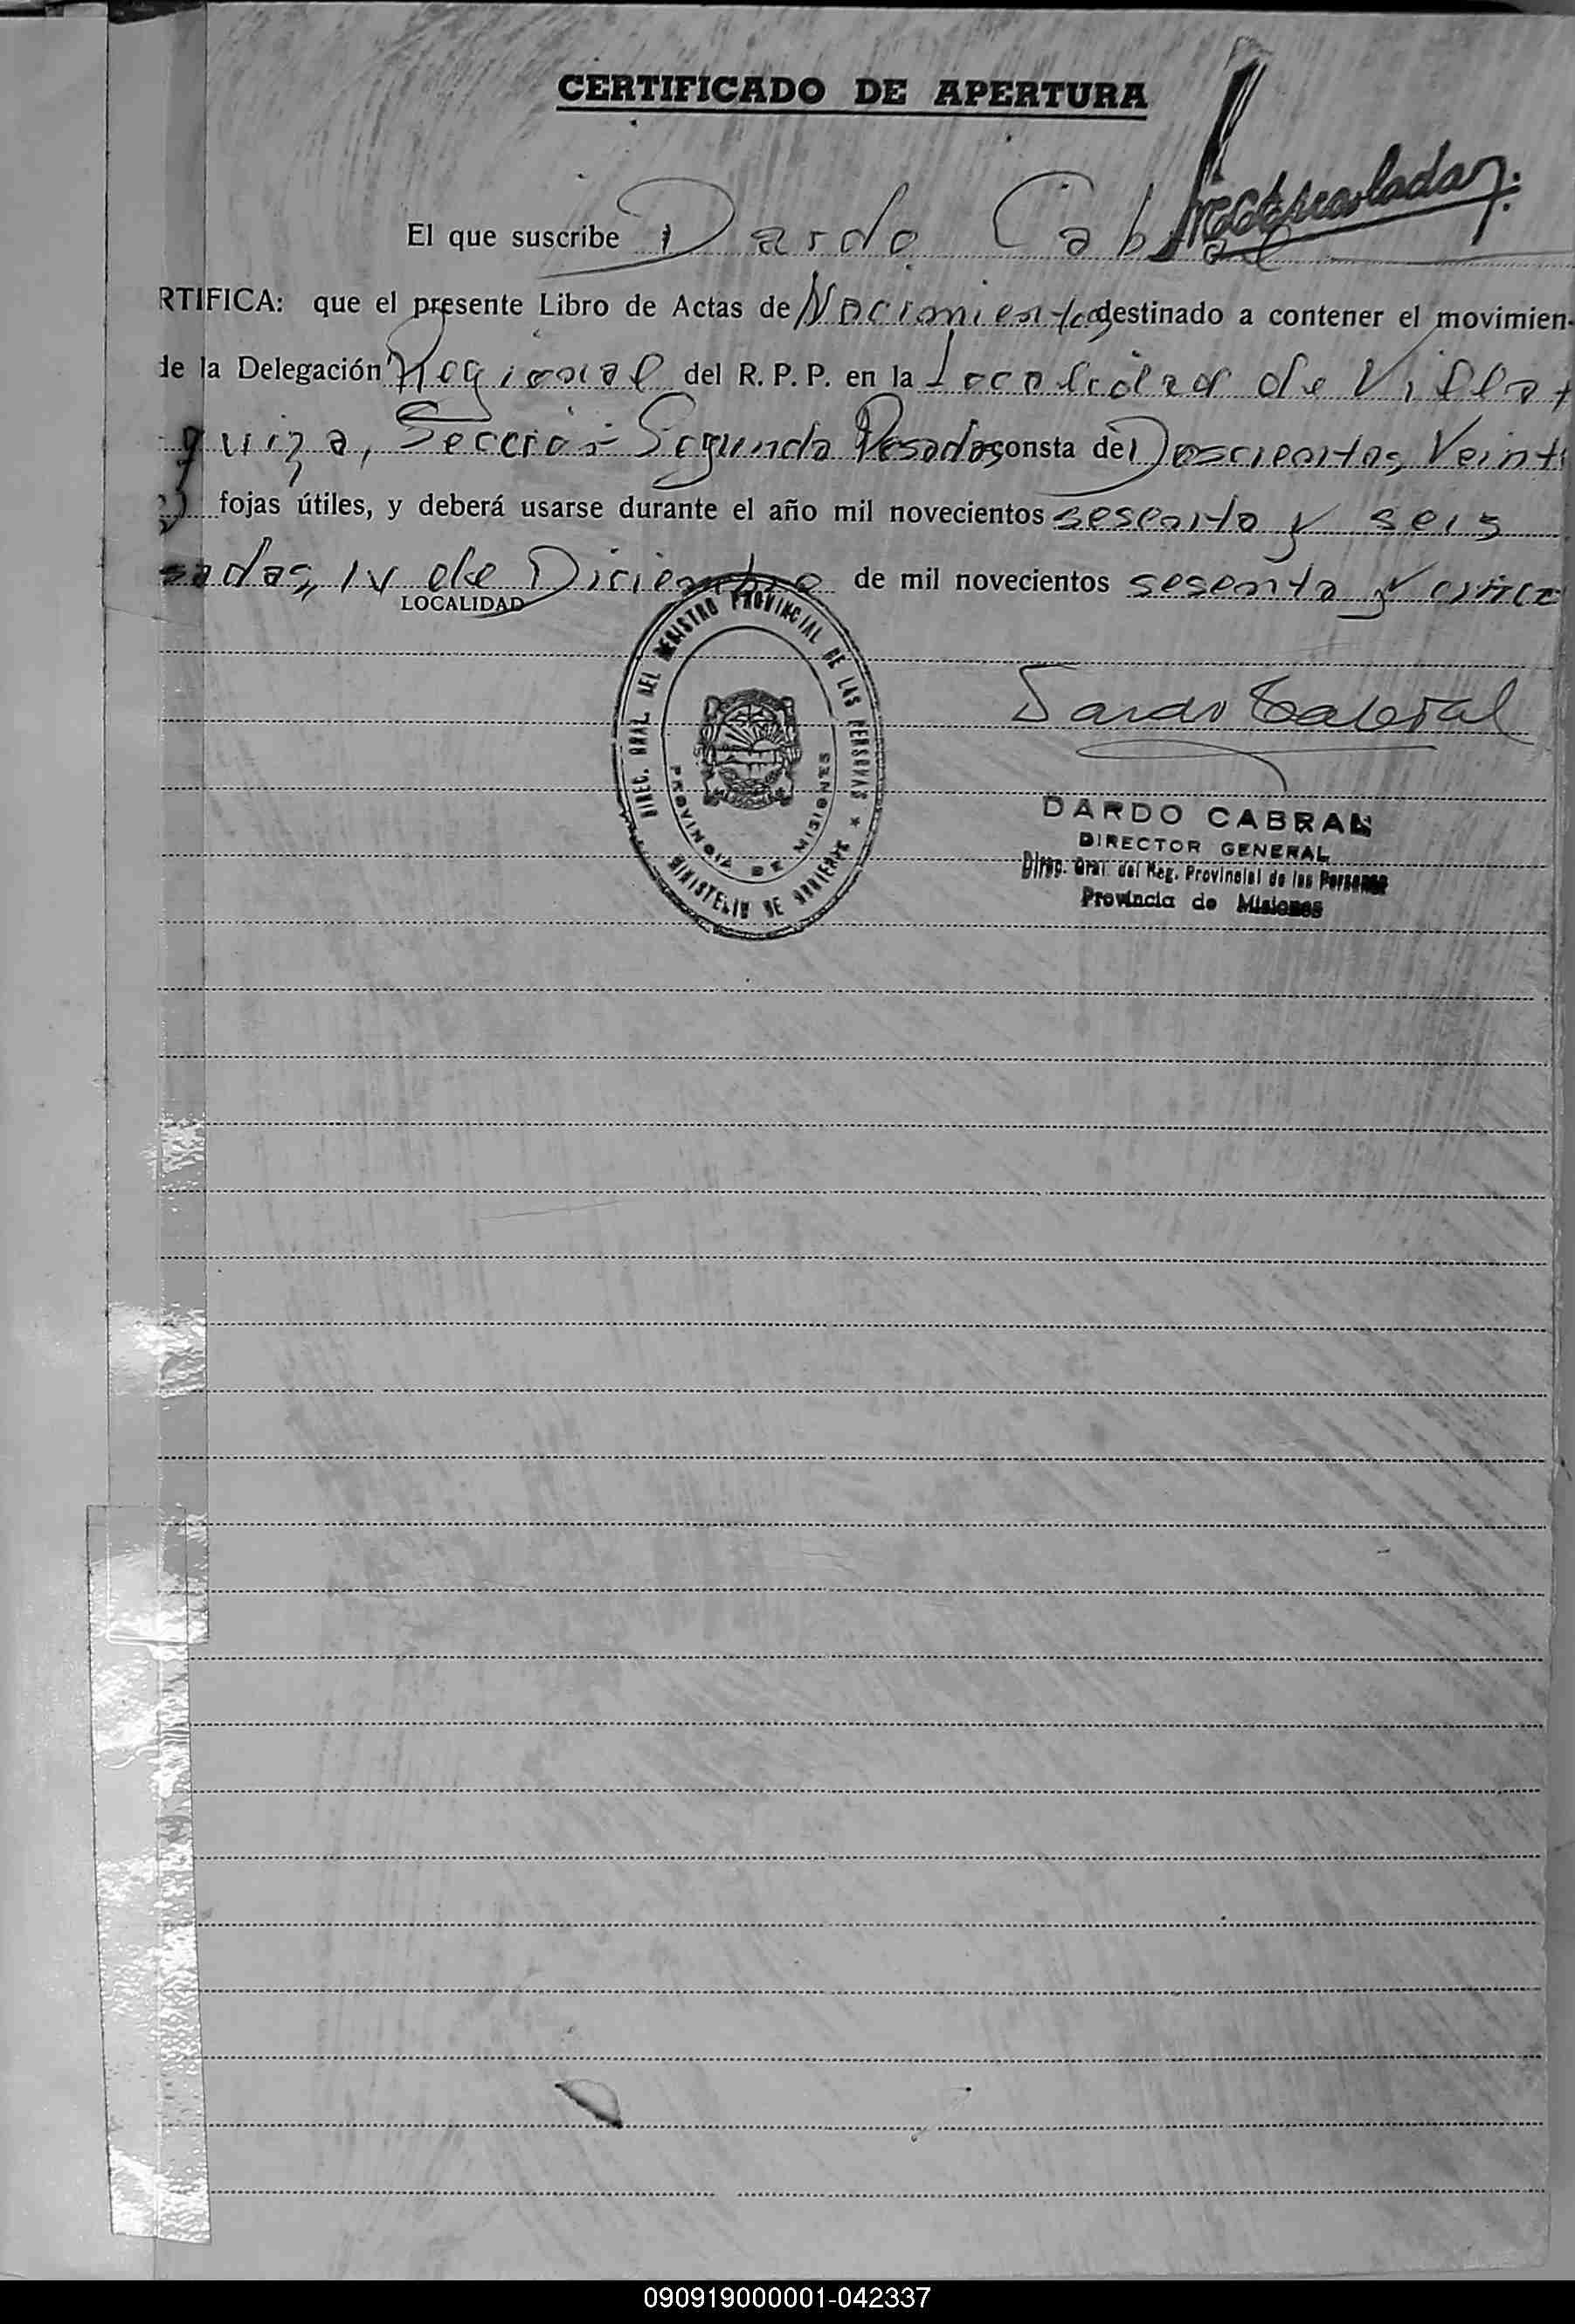 CERTIFICADO DE APERTURA
El que suscribe Dardo Cabral
RTIFICA: que el presente Libro de Actas de Nacimientos destinado a contener el movimien-
de la Delegación Regional del R. P. P. en la Localidad de Villa
quiza, Sección Segunda Posadas consta de Doscientos Veinti
fojas útiles, y deberá usarse durante el año mil novecientos sesenta y seis
sadas, IV de Diciembre de mil novecientos sesenta y cinco
LOCALIDAD
DIREC. GRAL. DEL REGISTRO PROVINCIAL DE LAS PERSONAS * MINISTERIO DE GOBIERNO
PROVINCIA DE MISIONES
Dardo Cabral
DARDO CABRAL
DIRECTOR GENERAL
Direc. Gral. del Reg. Provincial de las Personas
Provincia de Misiones
090919000001-042337